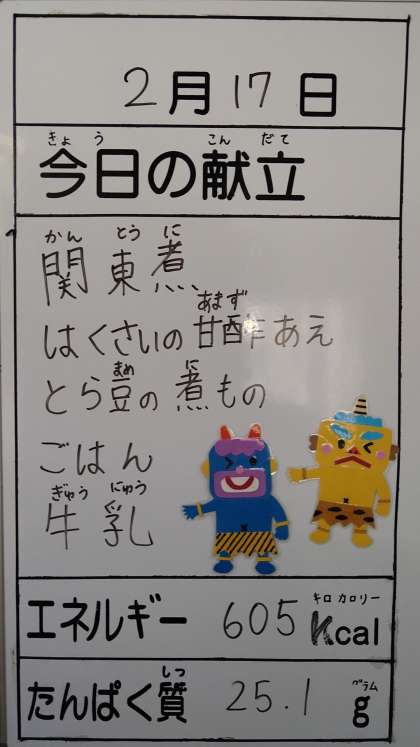 2月17日
きょう こんだて
今日の献立
かんとうに
関東煮
あまず
はくさいの甘酢あえ
まめ に
とら豆の煮もの
ごはん
ぎゅうにゅう
牛乳
キロカロリー
エネルギー 605 Kcal
しつ グラム
たんぱく質 25.1 g